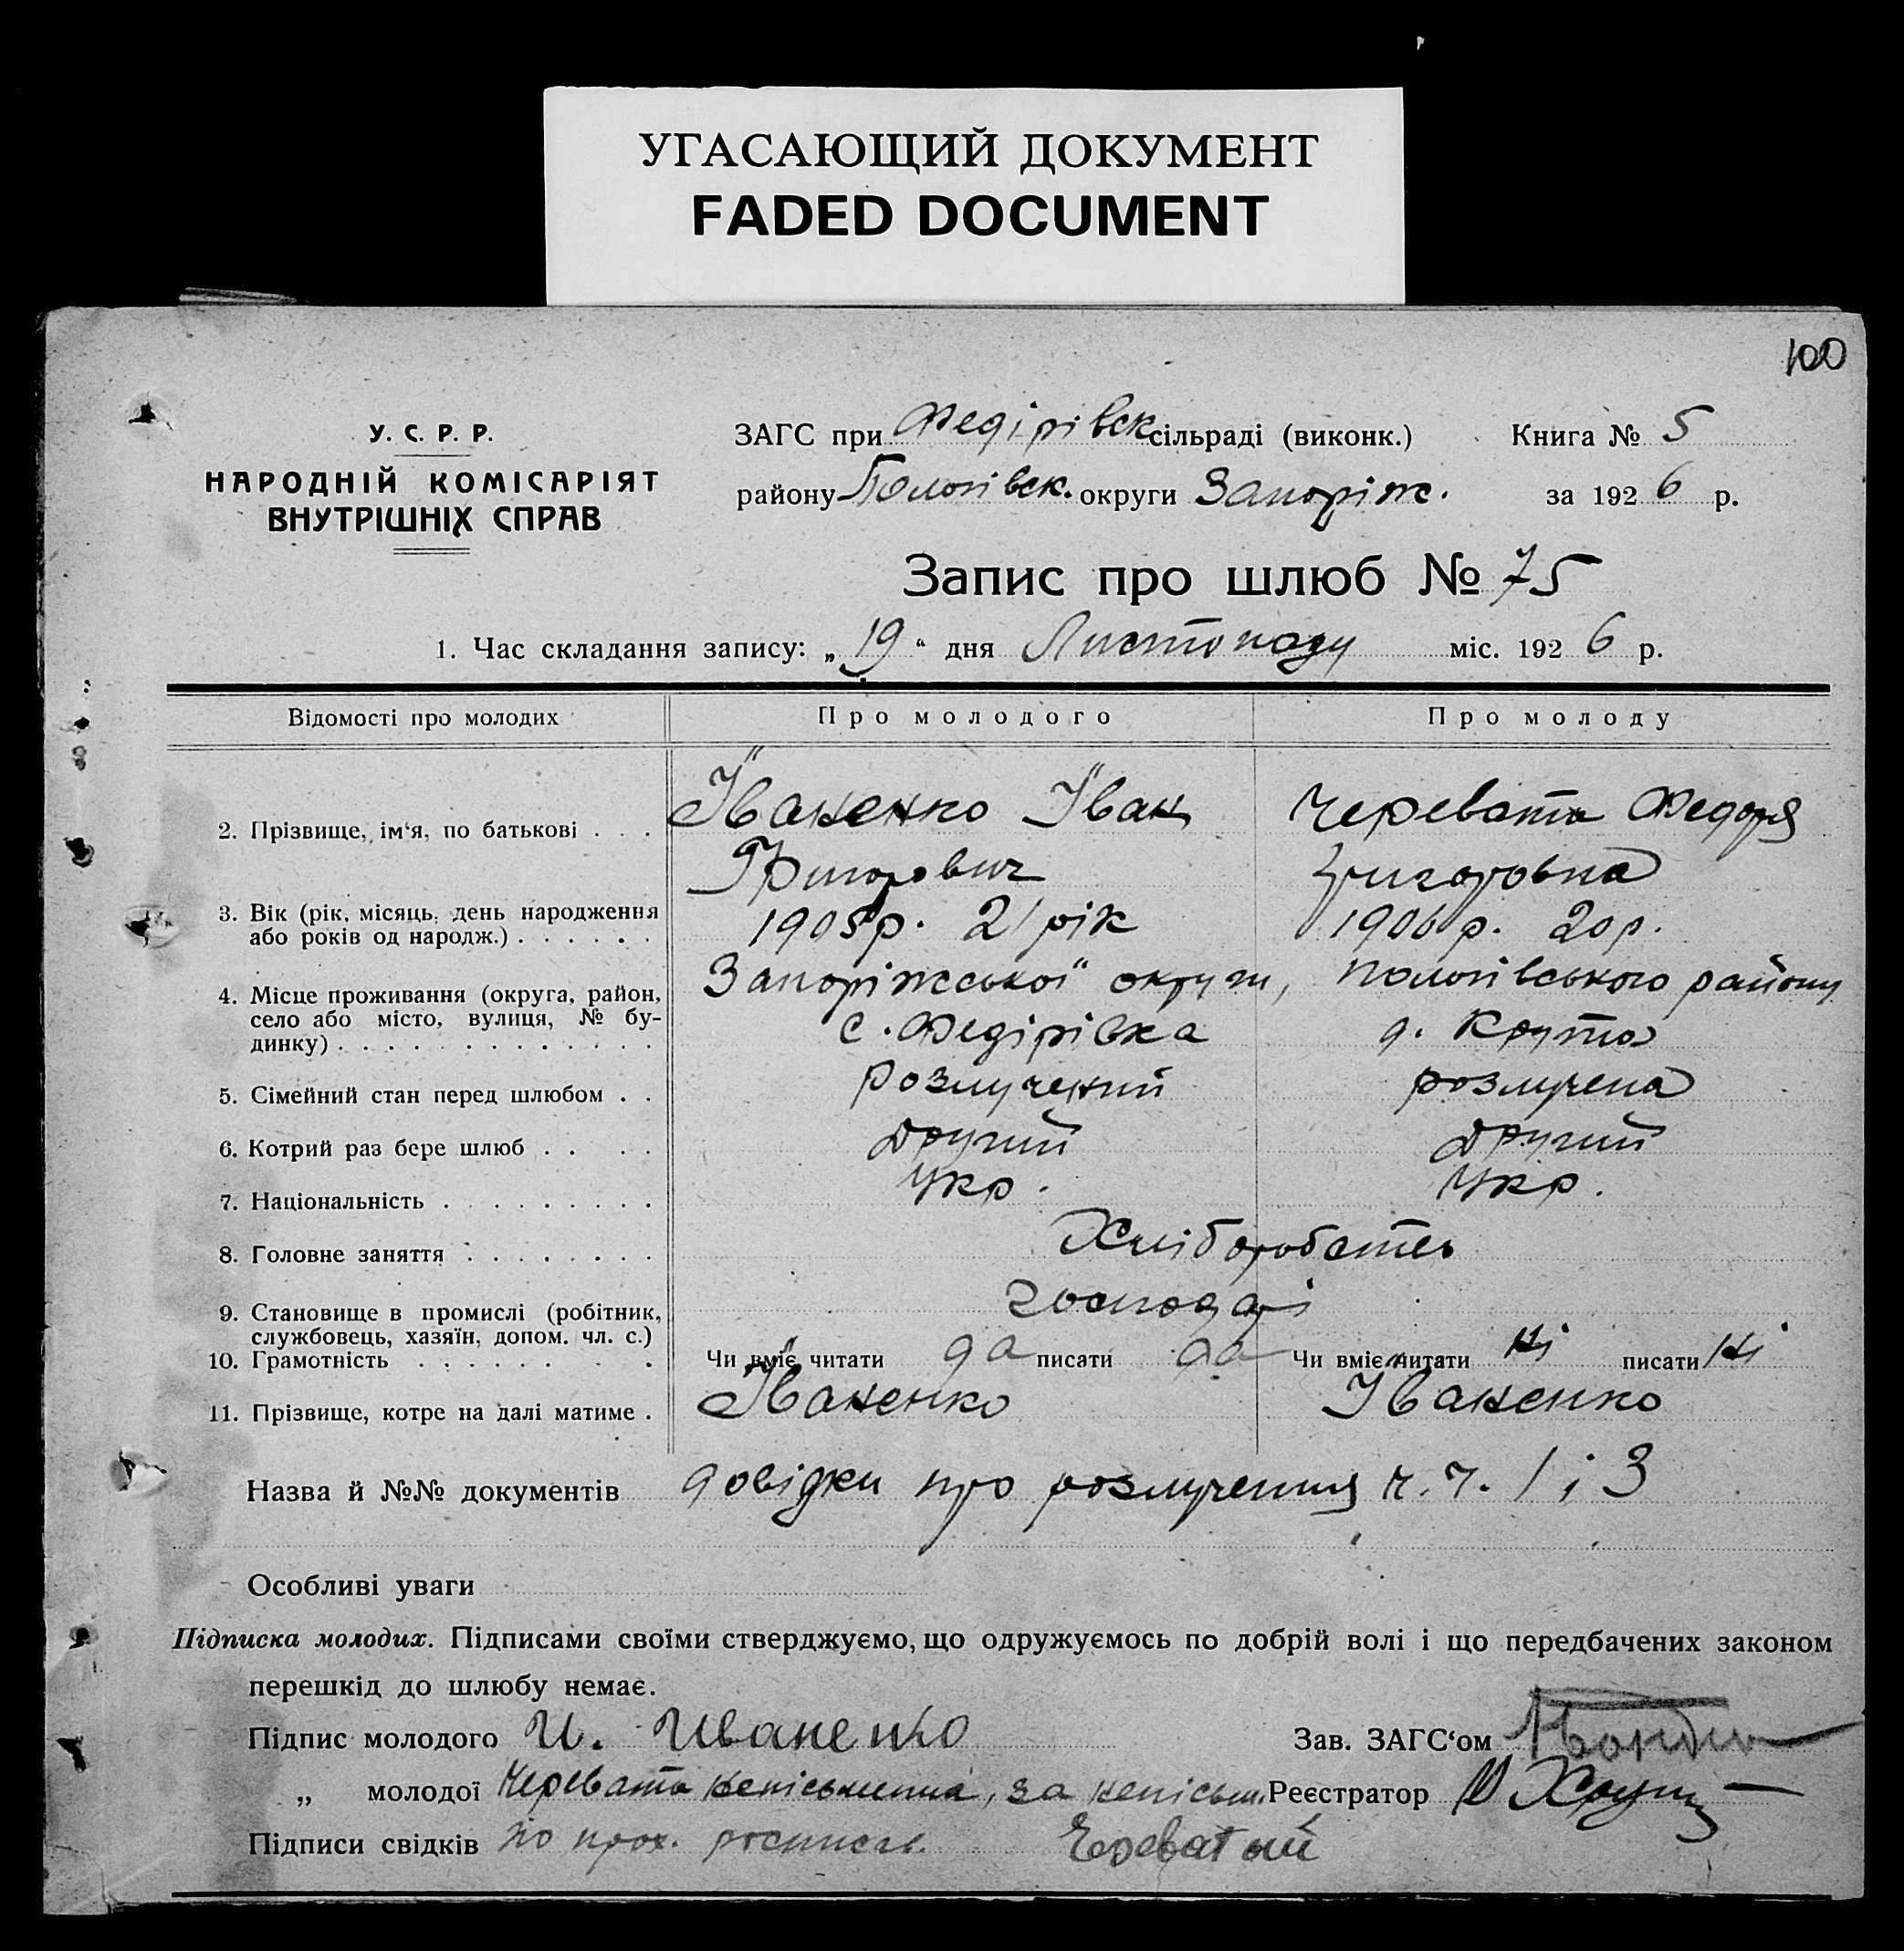 УГАСАЮЩИЙ ДОКУМЕНТ
FADED DOCUMENT
100
У. С. Р. Р.
НАРОДНІЙ КОМІСАРІЯТ
ВНУТРІШНІХ СПРАВ
ЗАГС при Федірівск сільраді (виконк.) Книга № 5
району Пологівск. округи Запоріж. за 1926 р.
Запис про шлюб № 75
1. Час складання запису: „19“ дня Листопаду міс. 1926 р.
Відомості про молодих Про молодого Про молоду
2. Прізвище, ім‘я, по батькові . . . Іваненко Іван Черевата Федора
Григорович Григоровна
3. Вік (рік, місяць, день народження 1905р. 21 рік 1906 р. 20 р.
або років од народж.) . . . . . .
4. Місце проживання (округа, район, Запоріжської округи, Пологівського району
село або місто, вулиця, № бу- с. Федірівка д. Крута
динку) . . . . . . . . . . . . .
5. Сімейний стан перед шлюбом . . розлучений розлучена
6. Котрий раз бере шлюб . . . . Другий Другий
7. Національність . . . . . . . . . Укр. Укр.
8. Головне заняття . . . . . . . . Хліборобство
9. Становище в промислі (робітник, господарі
службовець, хазяїн, допом. чл. с.)
10. Грамотність . . . . . . . . . Чи вміє читати да писати да Чи вміє читати ні писати ні
11. Прізвище, котре на далі матиме . Іваненко Іваненко
Назва й №№ документів довідки про розлучення ч.ч. 1 і 3
Особливі уваги
Підписка молодих. Підписами своїми стверджуємо, що одружуємось по добрій волі і що передбачених законом
перешкід до шлюбу немає.
Підпис молодого И. Иваненко Зав. ЗАГС‘ом
„ молодої Черевата неписьменна, за неписьм. Реєстратор
Підписи свідків по прох. росписавс. Череватый